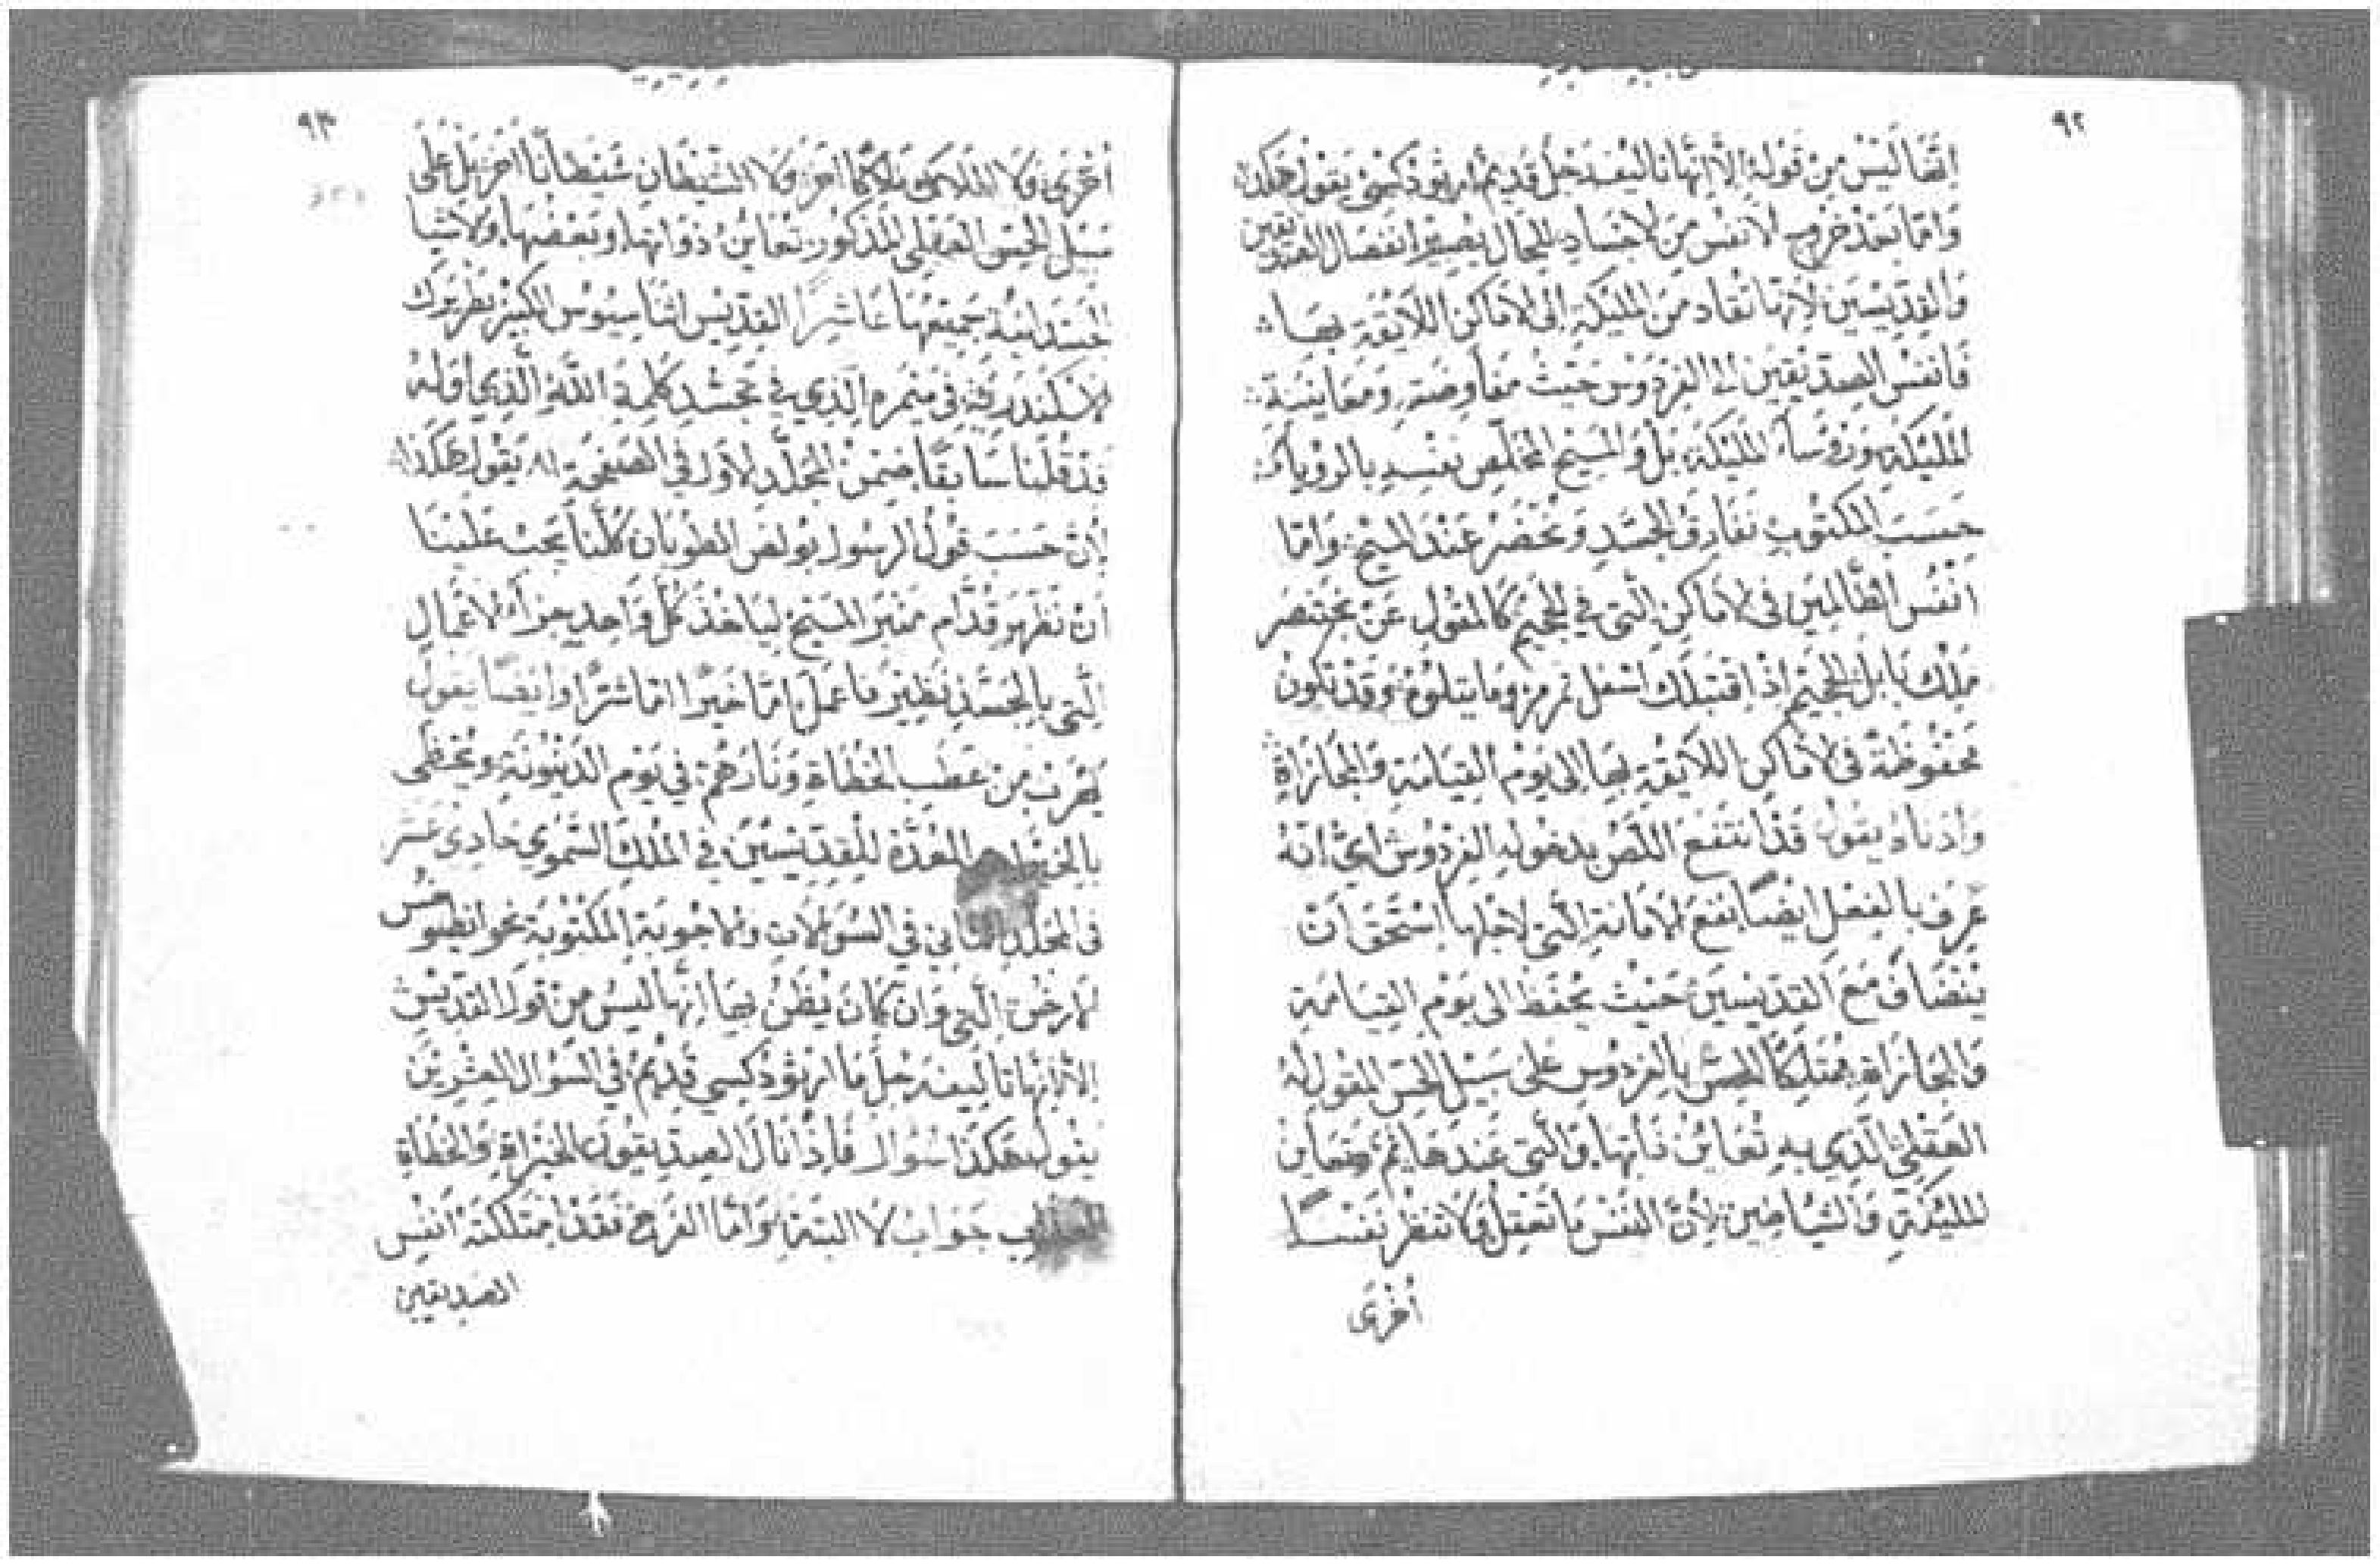 ٩٢
انها ليس من قوله الا انها تاليف رجل قديم ارثوذكسي يقول هكذا
واما بعد خروج الانفس من الاجساد للحال يصير انفصال الصديقين
والقديسين لانها تقاد من المليكة الى الاماكن اللائقة بها
فانفس الصديقين الى الفردوس حيث مفاوضة ومعاينة
المليكة وروسا المليكة بل والمسيح المخلص نفسه بالرويا
حسب المكتوب نفارق الجسد ونحضر عند المسيح واما
انفس الظالمين في الاماكن التي في الجحيم كالمقول عن بختنصر
ملك بابل الجحيم اذ اقتبلك اسفل تمرمر وما يتلوه وقد تكون
محفوظة في الاماكن اللايقة بها الى يوم القيامة والمجازاة
وادناه يقول قد انتفع اللص بدخوله الفردوس اي انه
عرف بالفعل ايضا نفع الامانة التي لاجلها استحق ان
ينضاف مع القديسين حيث يحفظ الى يوم القيامة
والمجازاة ممتلكا الحس بالفردوس على سبيل الحس المقول له
العقلي الذي به تعاين ذاتها والتي عندها ثم وتعاين
للمليكة والشياطين لان النفس ما تعقل ولا تنظر نفسا
أخرى
٩٣
أخرى ولا الملاك ملاكا اخر ولا الشيطان شيطانا اخر بل على
سبيل الحس العقلي المذكور تعاين ذواتها وبعضها والاشيا
الجسدانية جميعها عاشرا القديس اثناسيوس الكبير بطريرك
الاسكندرية في ميمره الذي في تجسد كلمة الله الذي اوله
قد قلنا سابقا ضمن المجلد الاول في الصفحة ٨١ يقول هكذا
لان حسب قول الرسول بولص الطوبان كلنا يجب علينا
ان نظهر قدام منبر المسيح لياخذ كل واحد جزاء الاعمال
التي بالجسد نظير ما عمل اما خيرا اما شرا وايضا يقول
لنهرب من عطب الخطاة ونارهم في يوم الدينونة ونحظى
المعدة للقديسين في الملك السموي حادى عشر
في المجلد الثاني في السولات والاجوبة المكتوبة نحو انطيوخس
الارخن التي وان كان يظن بها انها ليس من قول القديس
الا انها تاليف رجل ما ارثوذكسي قديم في السوال العشرين
يقول هكذا سوال فاذا نال الصديقون الخيراة والخطاة
العذاب جواب لا البتة واما الفرح فقد امتلكته انفس
الصديقين